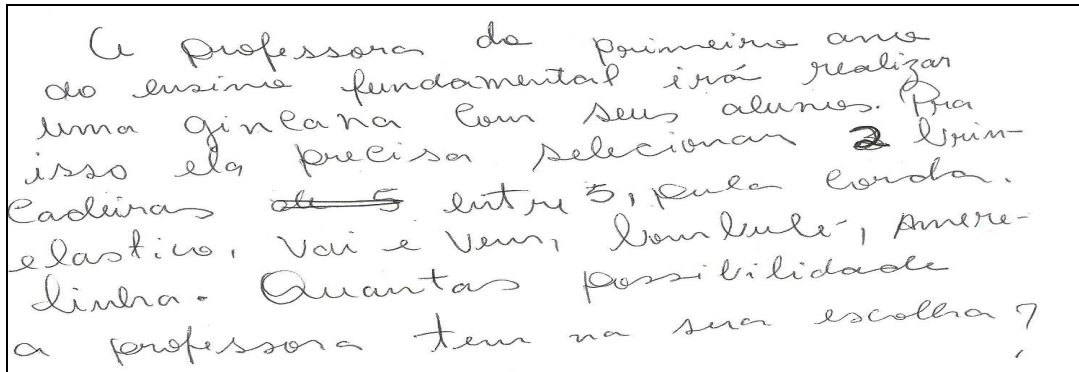 A professora do primeiro ano
do ensino fundamental irá realizar
uma gincana com seus alunos. Pra
isso ela precisa selecionar 2 brin-
cadeiras de 5 entre 5, pula corda.
elastico, vai e vem, bambulê, amare-
linha. Quantas possibilidade
a professora tem na sua escolha?